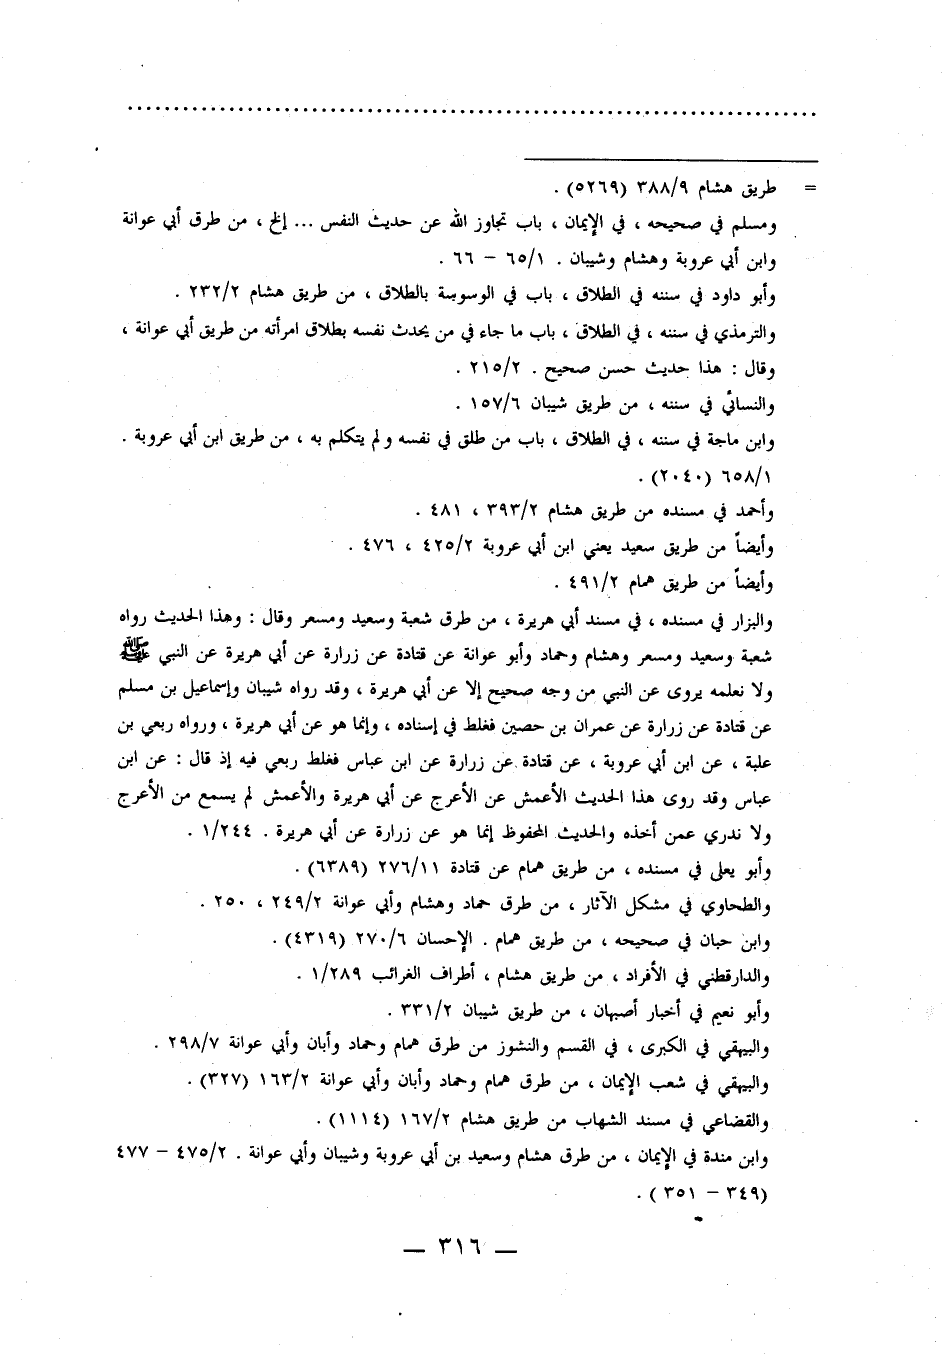 = طريق هشام ٣٨٨/٩ (٥٢٦٩) .
ومسلم في صحيحه ، في الإيمان ، باب تجاوز الله عن حديث النفس ... إلخ ، من طرق أبي عوانة
وابن أبي عروبة وهشام وشيبان . ٦٥/١ – ٦٦ .
وأبو داود في سننه في الطلاق ، باب في الوسوسة بالطلاق ، من طريق هشام ٢٣٢/٢ .
والترمذي في سننه ، في الطلاق ، باب ما جاء في من يحدث نفسه بطلاق امرأته من طريق أبي عوانة ،
وقال : هذا حديث حسن صحيح . ٢١٥/٢ .
والنسائي في سننه ، من طريق شيبان ١٥٧/٦ .
وابن ماجة في سننه ، في الطلاق ، باب من طلق في نفسه ولم يتكلم به ، من طريق ابن أبي عروبة .
٦٥٨/١ (٢٠٤٠) .
وأحمد في مسنده من طريق هشام ٣٩٣/٢ ، ٤٨١ .
وأيضاً من طريق سعيد يعني ابن أبي عروبة ٤٢٥/٢ ، ٤٧٦ .
وأيضاً من طريق همام ٤٩١/٢ .
والبزار في مسنده ، في مسند أبي هريرة ، من طرق شعبة وسعيد ومسعر وقال : وهذا الحديث رواه
شعبة وسعيد ومسعر وهشام وحماد وأبو عوانة عن قتادة عن زرارة عن أبي هريرة عن النبي ﷺ
ولا نعلمه يروى عن النبي من وجه صحيح إلا عن أبي هريرة ، وقد رواه شيبان وإسماعيل بن مسلم
عن قتادة عن زرارة عن عمران بن حصين فغلط في إسناده ، وإنما هو عن أبي هريرة ، ورواه ربعي بن
علية ، عن ابن أبي عروبة ، عن قتادة عن زرارة عن ابن عباس فغلط ربعي فيه إذ قال : عن ابن
عباس وقد روى هذا الحديث الأعمش عن الأعرج عن أبي هريرة والأعمش لم يسمع من الأعرج
ولا ندري عمن أخذه والحديث المحفوظ إنما هو عن زرارة عن أبي هريرة . ١/٢٤٤ .
وأبو يعلى في مسنده ، من طريق همام عن قتادة ٢٧٦/١١ (٦٣٨٩) .
والطحاوي في مشكل الآثار ، من طرق حماد وهشام وأبي عوانة ٢٤٩/٢ ، ٢٥٠ .
وابن حبان في صحيحه ، من طريق همام . الإحسان ٢٧٠/٦ (٤٣١٩) .
والدارقطني في الأفراد ، من طريق هشام ، أطراف الغرائب ١/٢٨٩ .
وأبو نعيم في أخبار أصبهان ، من طريق شيبان ٣٣١/٢ .
والبيهقي في الكبرى ، في القسم والنشوز من طرق همام وحماد وأبان وأبي عوانة ٢٩٨/٧ .
والبيهقي في شعب الإيمان ، من طرق همام وحماد وأبان وأبي عوانة ١٦٣/٢ (٣٢٧) .
والقضاعي في مسند الشهاب من طريق هشام ١٦٧/٢ (١١١٤) .
وابن مندة في الإيمان ، من طرق هشام وسعيد بن أبي عروبة وشيبان وأبي عوانة . ٤٧٥/٢ – ٤٧٧
(٣٤٩ – ٣٥١ ) .
— ٣١٦ —